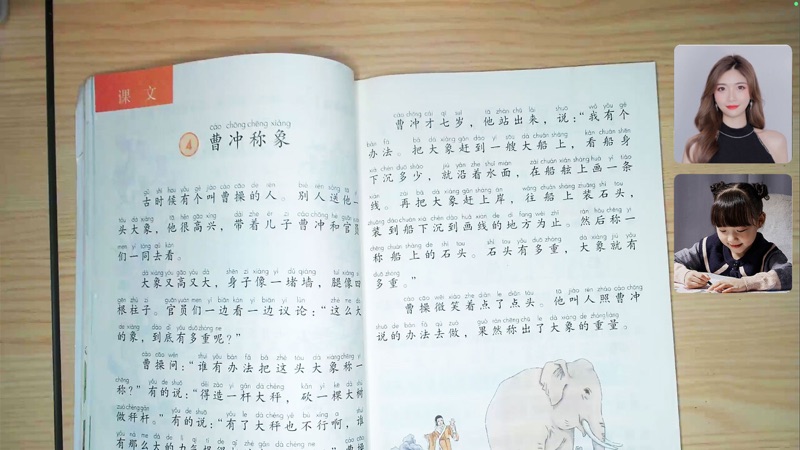 课文
4
cáo chōng chēng xiàng
曹冲称象
古时候有个叫曹操的人。别人送他一
头大象，他很高兴，带着儿子曹冲和官员
们一同去看。
大象又高又大，身子像一堵墙，腿像四
根柱子。官员们一边看一边议论：“这么大
的象，到底有多重呢？”
曹操问：“谁有办法把这头大象称一
称？”有的说：“得造一杆大秤，砍一棵大树
做秤杆。”有的说：“有了大秤也不行啊，谁
有那么大的力气
曹冲才七岁，他站出来，说：“我有个
办法。把大象赶到一艘大船上，看船身
下沉多少，就沿着水面，在船舷上画一条
线。再把大象赶上岸，往船上装石头，
装到船下沉到画线的地方为止。然后称一
称船上的石头。石头有多重，大象就有
多重。”
曹操微笑着点了点头。他叫人照曹冲
说的办法去做，果然称出了大象的重量。